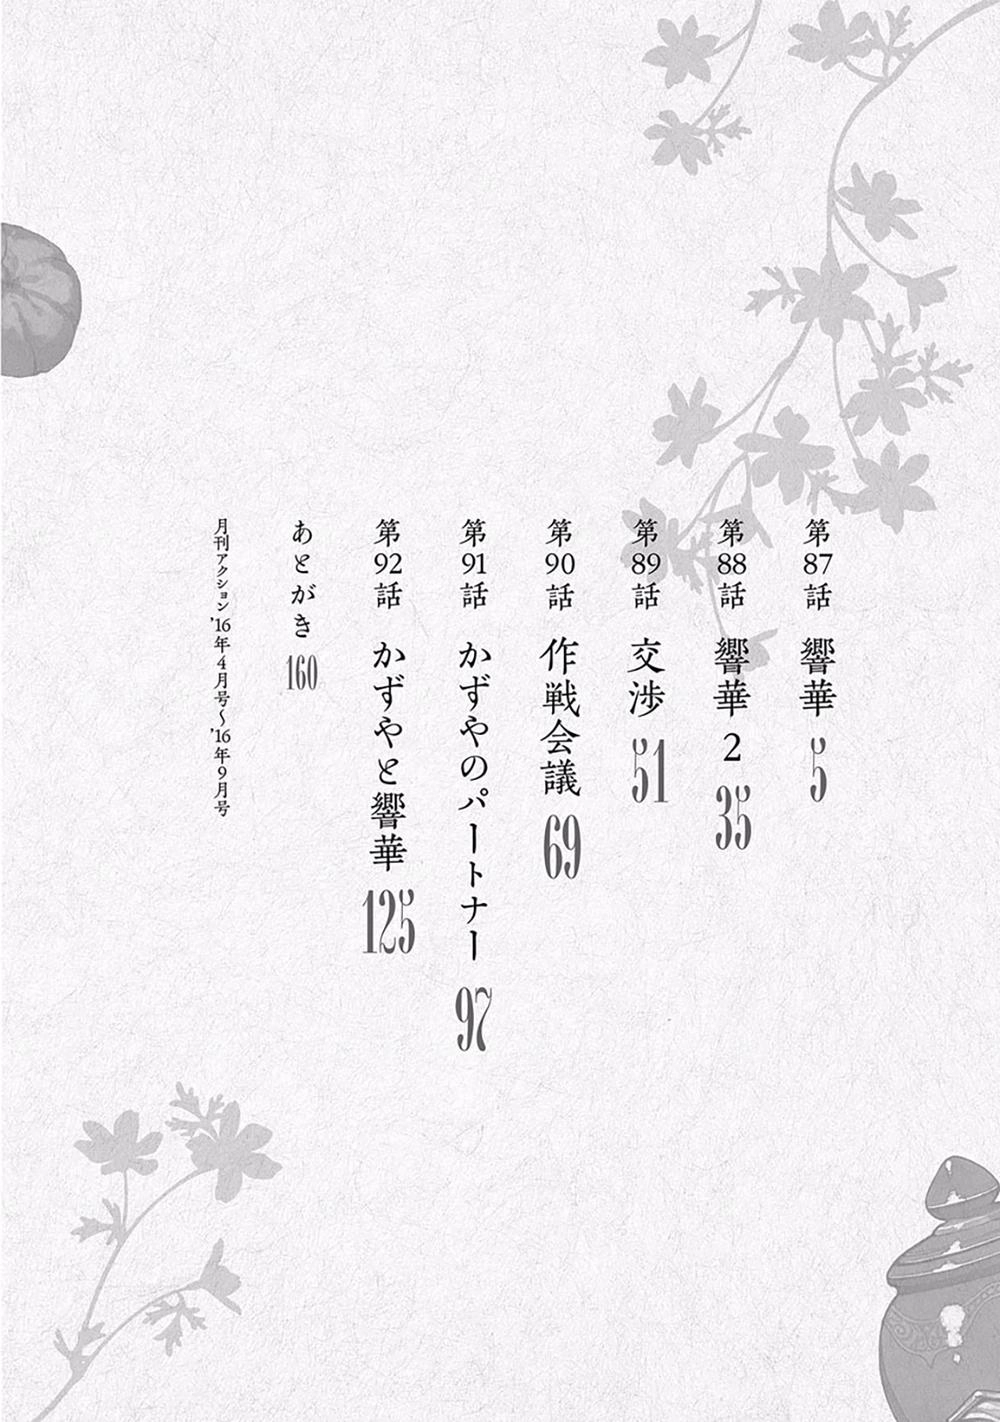 第87話 響華 5
第88話 響華 2 35
第89話 交渉 51
第90話 作戦会議 69
第91話 かずやのパートナー 97
第92話 かずやと響華 125
あとがき 160
月刊アクション '16年4月号〜'16年9月号